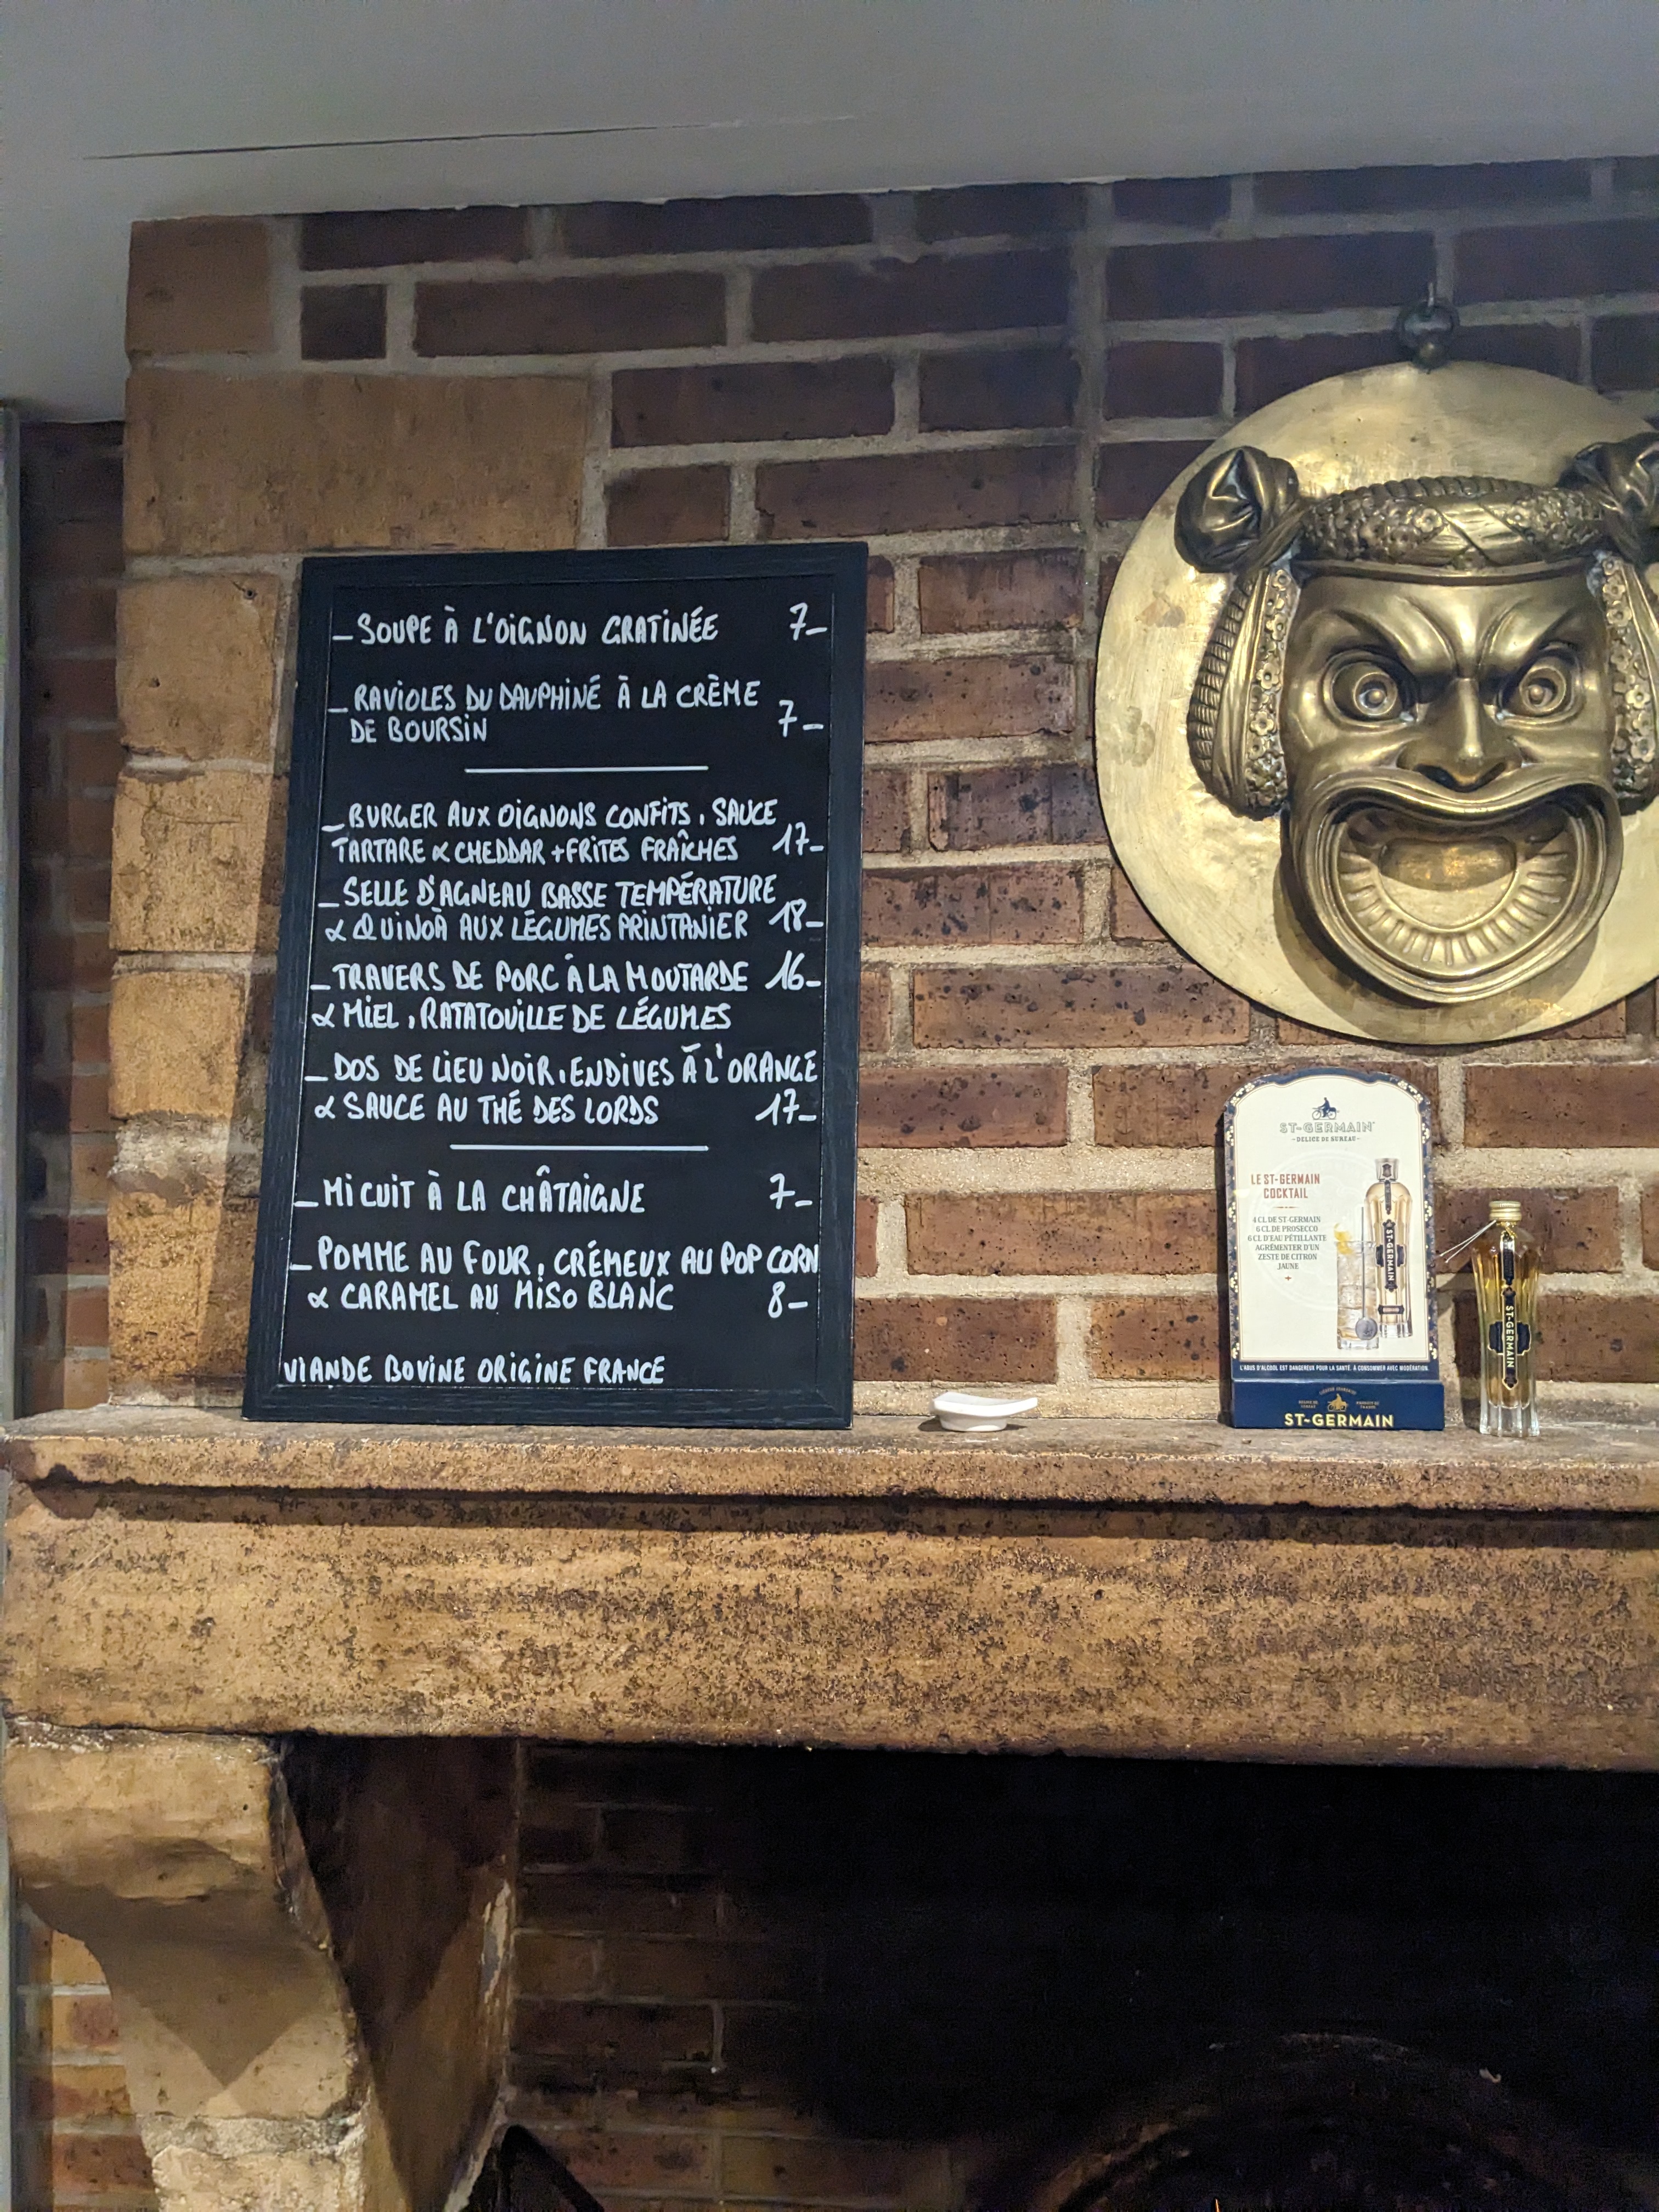 _ SOUPE À L'OIGNON GRATINÉE 7_
_ RAVIOLES DU DAUPHINÉ À LA CRÈME
DE BOURSIN 7_
_ BURGER AUX OIGNONS CONFITS, SAUCE
TARTARE & CHEDDAR + FRITES FRAÎCHES 17_
_ SELLE D'AGNEAU BASSE TEMPÉRATURE
& QUINOÀ AUX LÉGUMES PRINTANIER 18_
_ TRAVERS DE PORC À LA MOUTARDE 16_
& MIEL, RATATOUILLE DE LÉGUMES
_ DOS DE LIEU NOIR, ENDIVES À L'ORANGE
& SAUCE AU THÉ DES LORDS 17_
_ MI CUIT À LA CHÂTAIGNE 7_
_ POMME AU FOUR, CRÉMEUX AU POP CORN
& CARAMEL AU MISO BLANC 8_
VIANDE BOVINE ORIGINE FRANCE
ST-GERMAIN
- DÉLICE DE SUREAU -
LE ST-GERMAIN
COCKTAIL
4 CL DE ST-GERMAIN
6 CL DE PROSECCO
6 CL D'EAU PÉTILLANTE
AGRÉMENTER D'UN
ZESTE DE CITRON
JAUNE
ST-GERMAIN
L'ABUS D'ALCOOL EST DANGEREUX POUR LA SANTÉ. À CONSOMMER AVEC MODÉRATION.
ST-GERMAIN
ST-GERMAIN